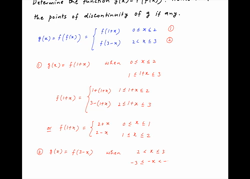 Determine the function g(x)=f(f(x)).
the points of discontinuity of g if any.
g(x) = f(f(x)) = { f(1+x) 0≤x≤2 ①
f(3-x) 2<x≤3 ②
① g(x) = f(1+x) when 0≤x≤2
1≤1+x≤3
f(1+x) = { 1+(1+x) 1≤1+x≤2
3-(1+x) 2≤1+x≤3
f(1+x) = { 2+x 0≤x≤1
2-x 1≤x≤2
② g(x) = f(3-x) when 2<x≤3
-3≤-x<-